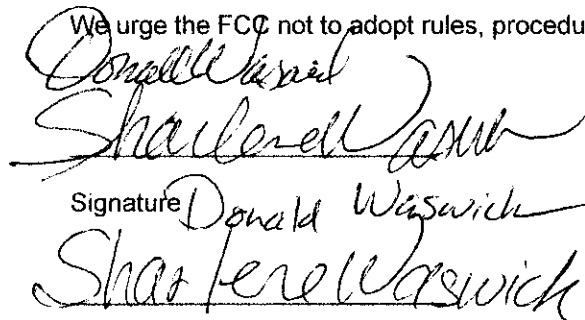 We urge the FCC not to adopt rules, procedu
Donald Waswick
Sharlene Waswick
Signature Donald Waswick
Sharlene Waswick